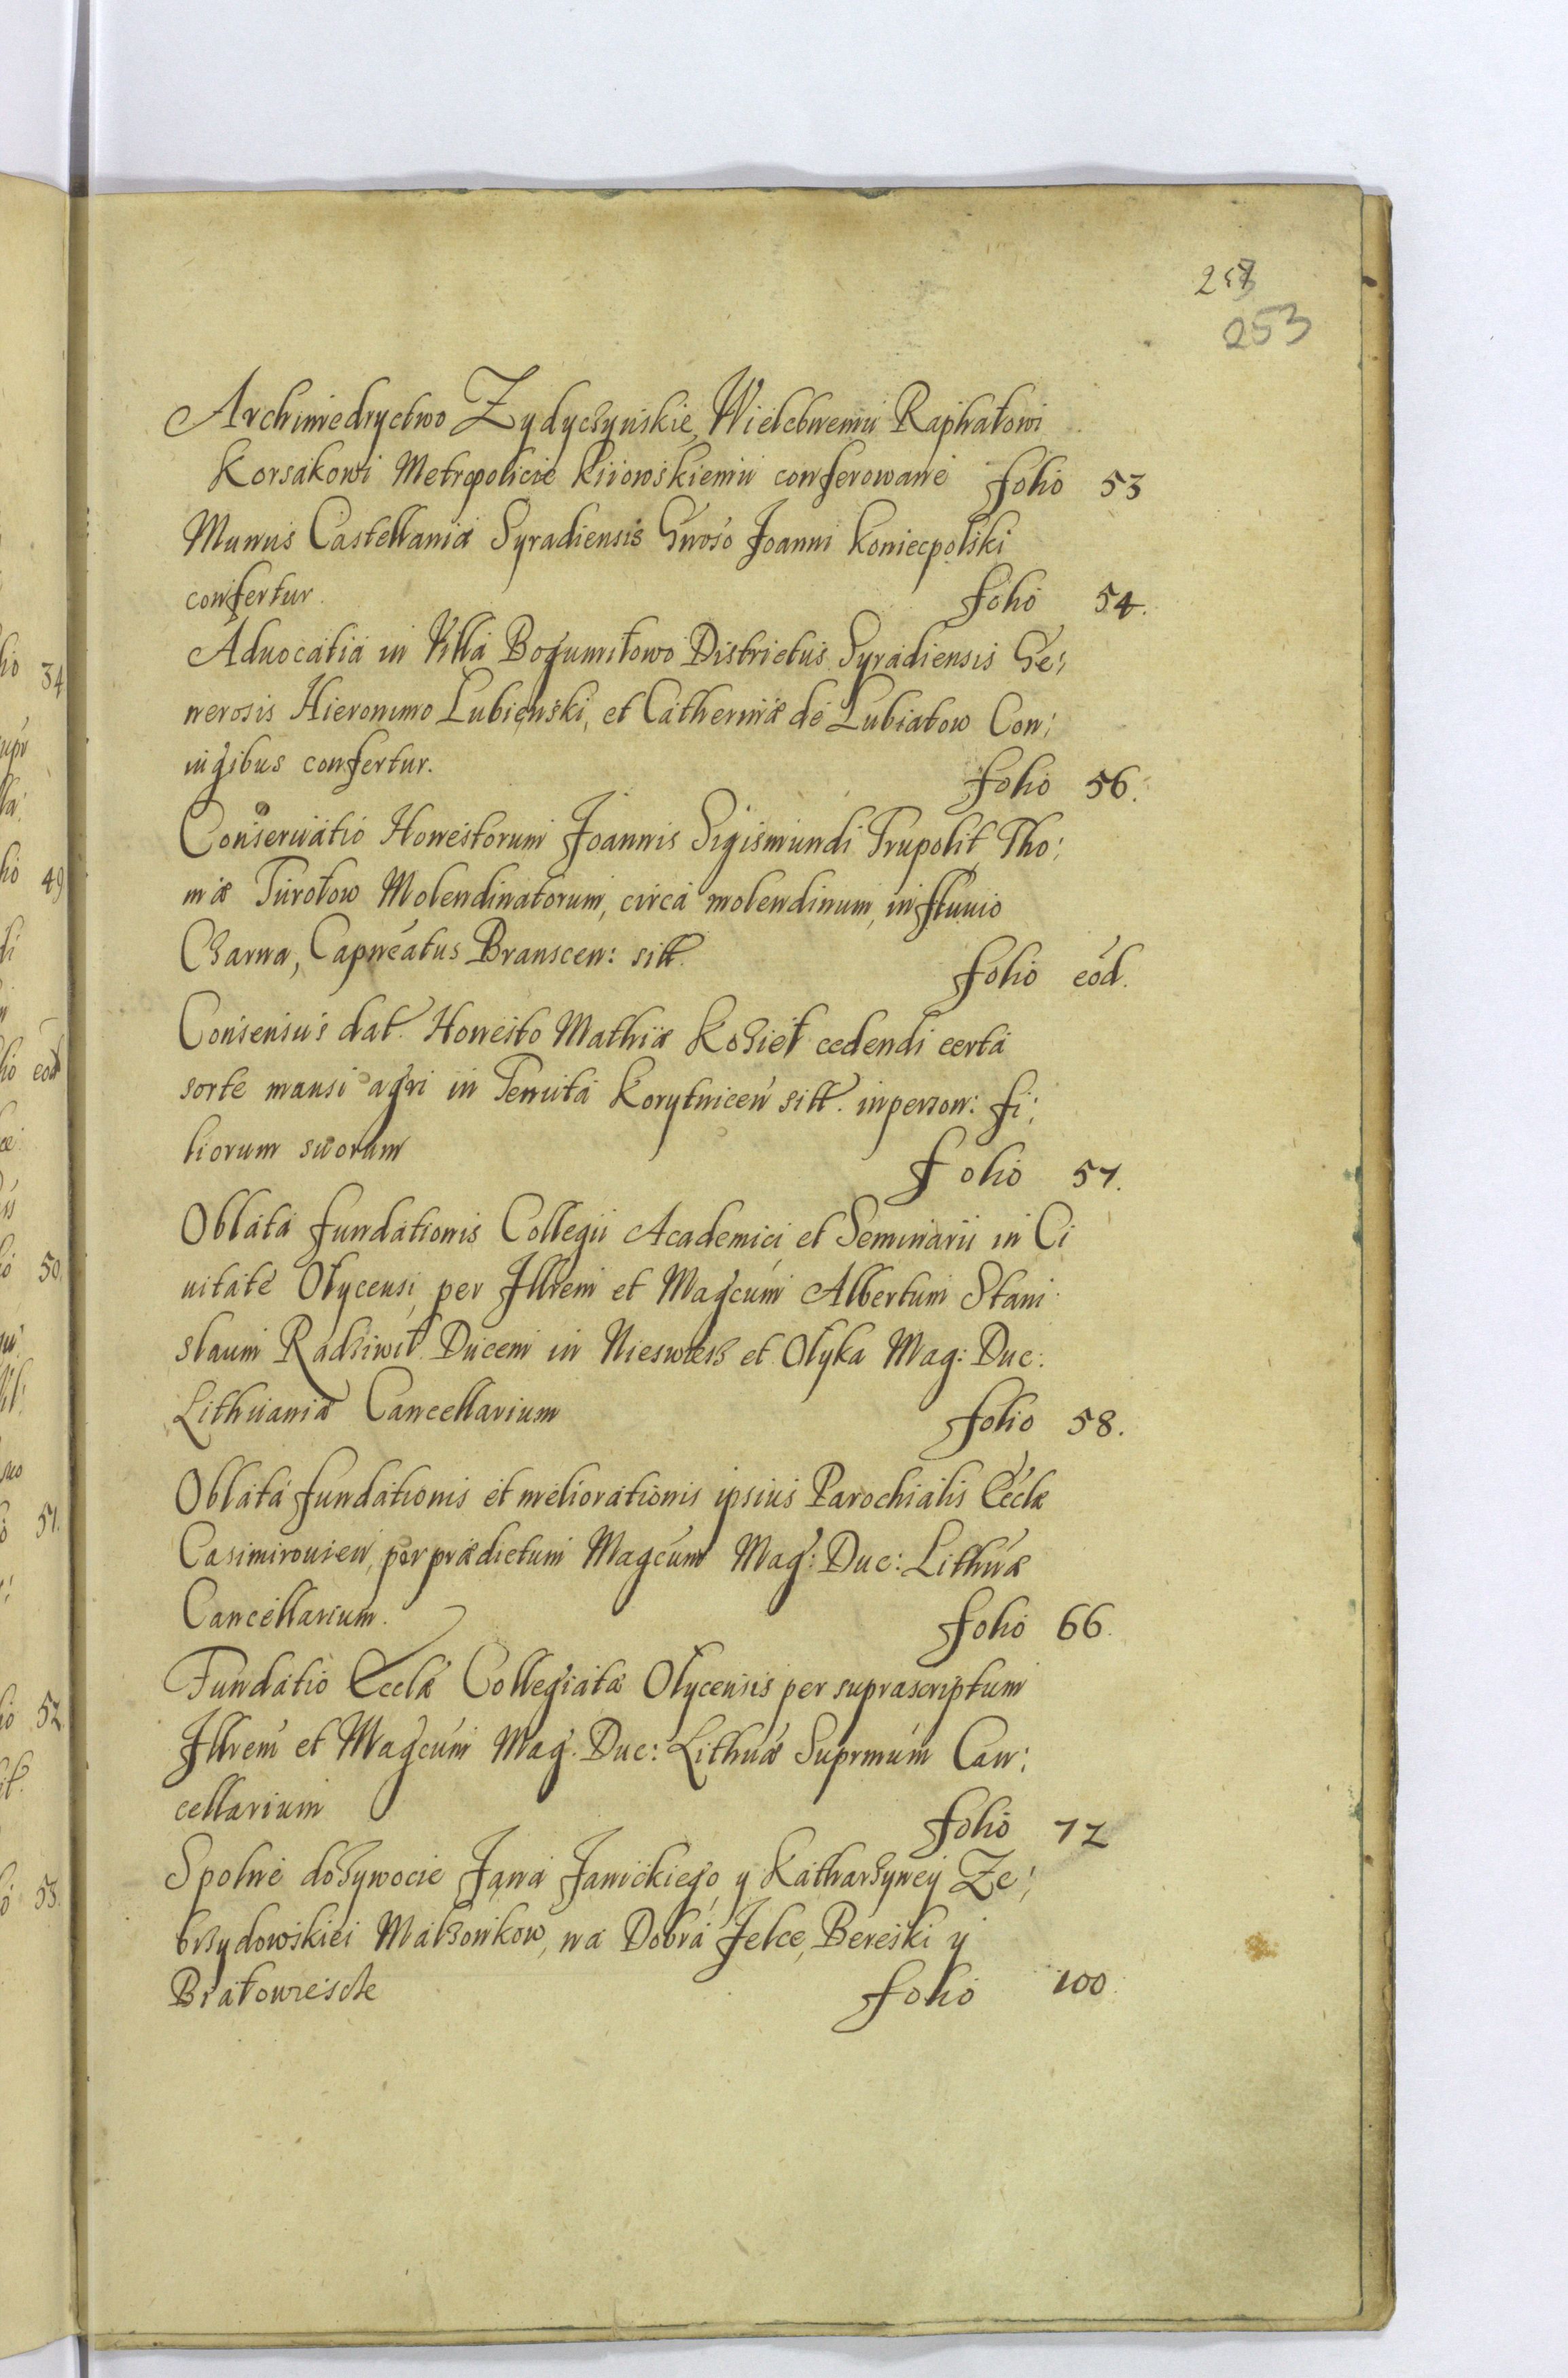 253
Archimiedryctwo Zydyczynskie, Wielebnemu Raphałowi
Korsakowi Metropolicie Kiiowskiemu conferowane folio 53
Munus Castellaniæ Syradiensis Gnoso Joanni Koniecpolski
confertur. folio 54.
Aduocatia in Villa Bogumiłowo Districtus Syradiensis Ge:
nerosis Hieronimo Lubienski, et Catherinæ de Lubiatow Con:
iugibus confertur. folio 56.
Conseruatio Honestorum Joannis Sigismundi Trupolit, Tho:
mæ Turołow Molendinatorum, circa molendinum, in fluuio
Czarna, Capneatus Branscen: sitt. folio eod.
Consensus dat. Honesto Mathiæ Kozieł cedendi certa
sorte mansi agri in Tenuta Korytnicen sitt. in person: fi:
liorum suorum folio 57.
Oblata fundationis Collegii Academici et Seminarii in Ci
uitate Olycensi, per Illrem et Magcum Albertum Stani
slaum Radziwił Ducem in Nieswiesz et Olyka Mag: Duc:
Lithuaniæ Cancellarium folio 58.
Oblata fundationis et meliorationis ipsius Parochialis Eccle
Casimirouien, per prædictum Magcum Mag: Duc: Lithuæ
Cancellarium. folio 66.
Fundatio Ecclæ Collegiatæ Olycensis per suprascriptum
Illrem et Magcum Mag. Duc: Lithuæ Suprmum Can:
cellarium folio 72
Spolne dozywocie Jana Janickiego, y Katharzyney Ze:
brzydowskiei Małzonkow, na Dobra Jelce, Bereski y
folio 100
34
49
eod
50
51.
52
53.